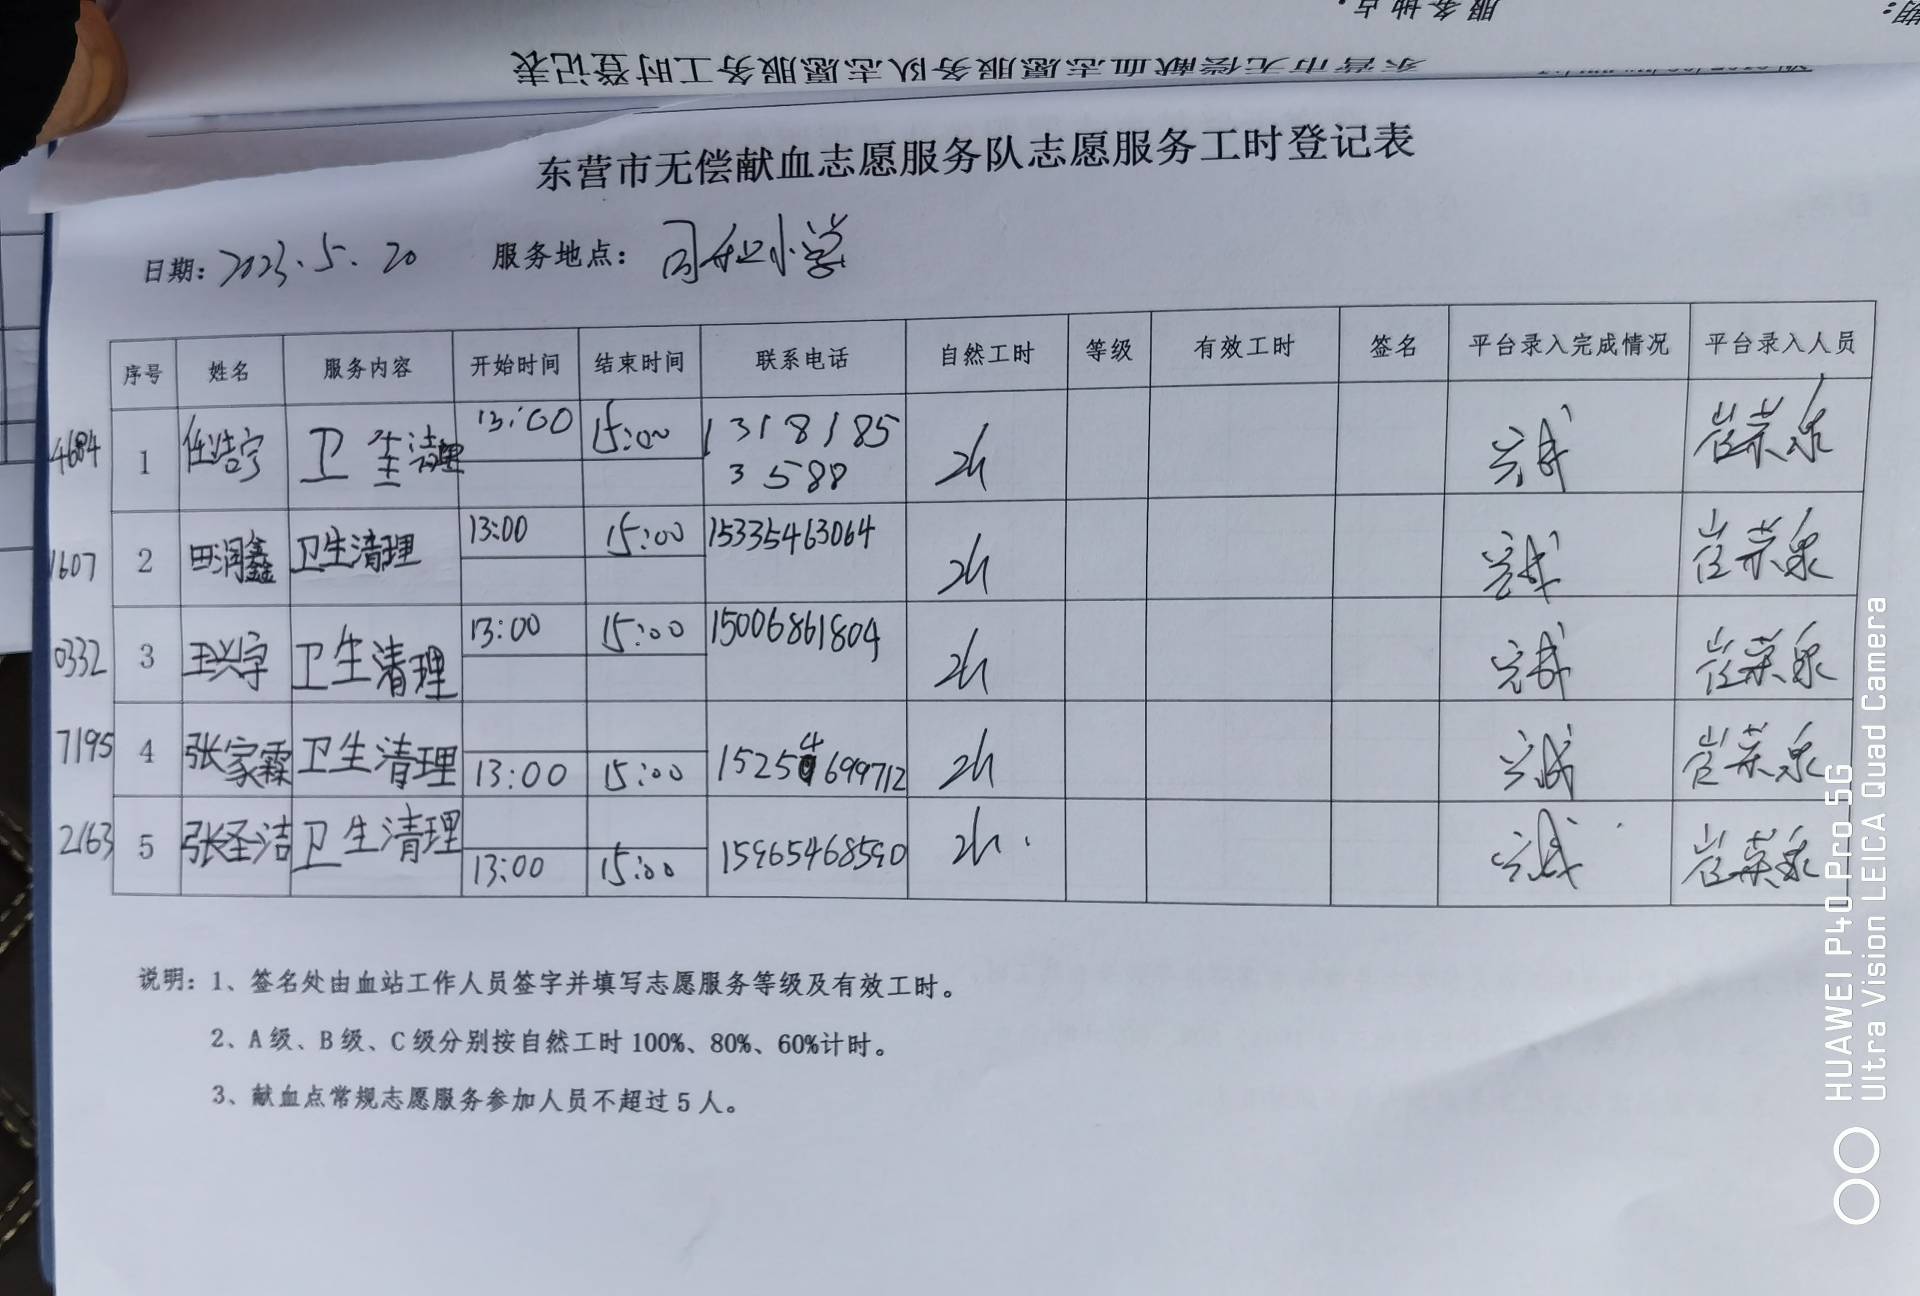 东营市无偿献血志愿服务队志愿服务工时登记表
东营市无偿献血志愿服务队志愿服务工时登记表
日期: 2023.5.20 服务地点: 小学
序号 姓名 服务内容 开始时间 结束时间 联系电话 自然工时 等级 有效工时 签名 平台录入完成情况 平台录入人员
4684 1 任浩宇 卫生清理 13:00 15:00 13181853588 2h 完成 崔荣泉
1607 2 田润鑫 卫生清理 13:00 15:00 15335463064 2h 完成 崔荣泉
0332 3 王兴宇 卫生清理 13:00 15:00 15006861804 2h 完成 崔荣泉
7195 4 张家霖 卫生清理 13:00 15:00 15254699712 2h 完成 崔荣泉
2163 5 张圣洁 卫生清理 13:00 15:00 15965468590 2h 完成 崔荣泉
说明: 1、签名处由血站工作人员签字并填写志愿服务等级及有效工时。
2、A级、B级、C级分别按自然工时100%、80%、60%计时。
3、献血点常规志愿服务参加人员不超过5人。
HUAWEI P40 Pro 5G
Ultra Vision LEICA Quad Camera